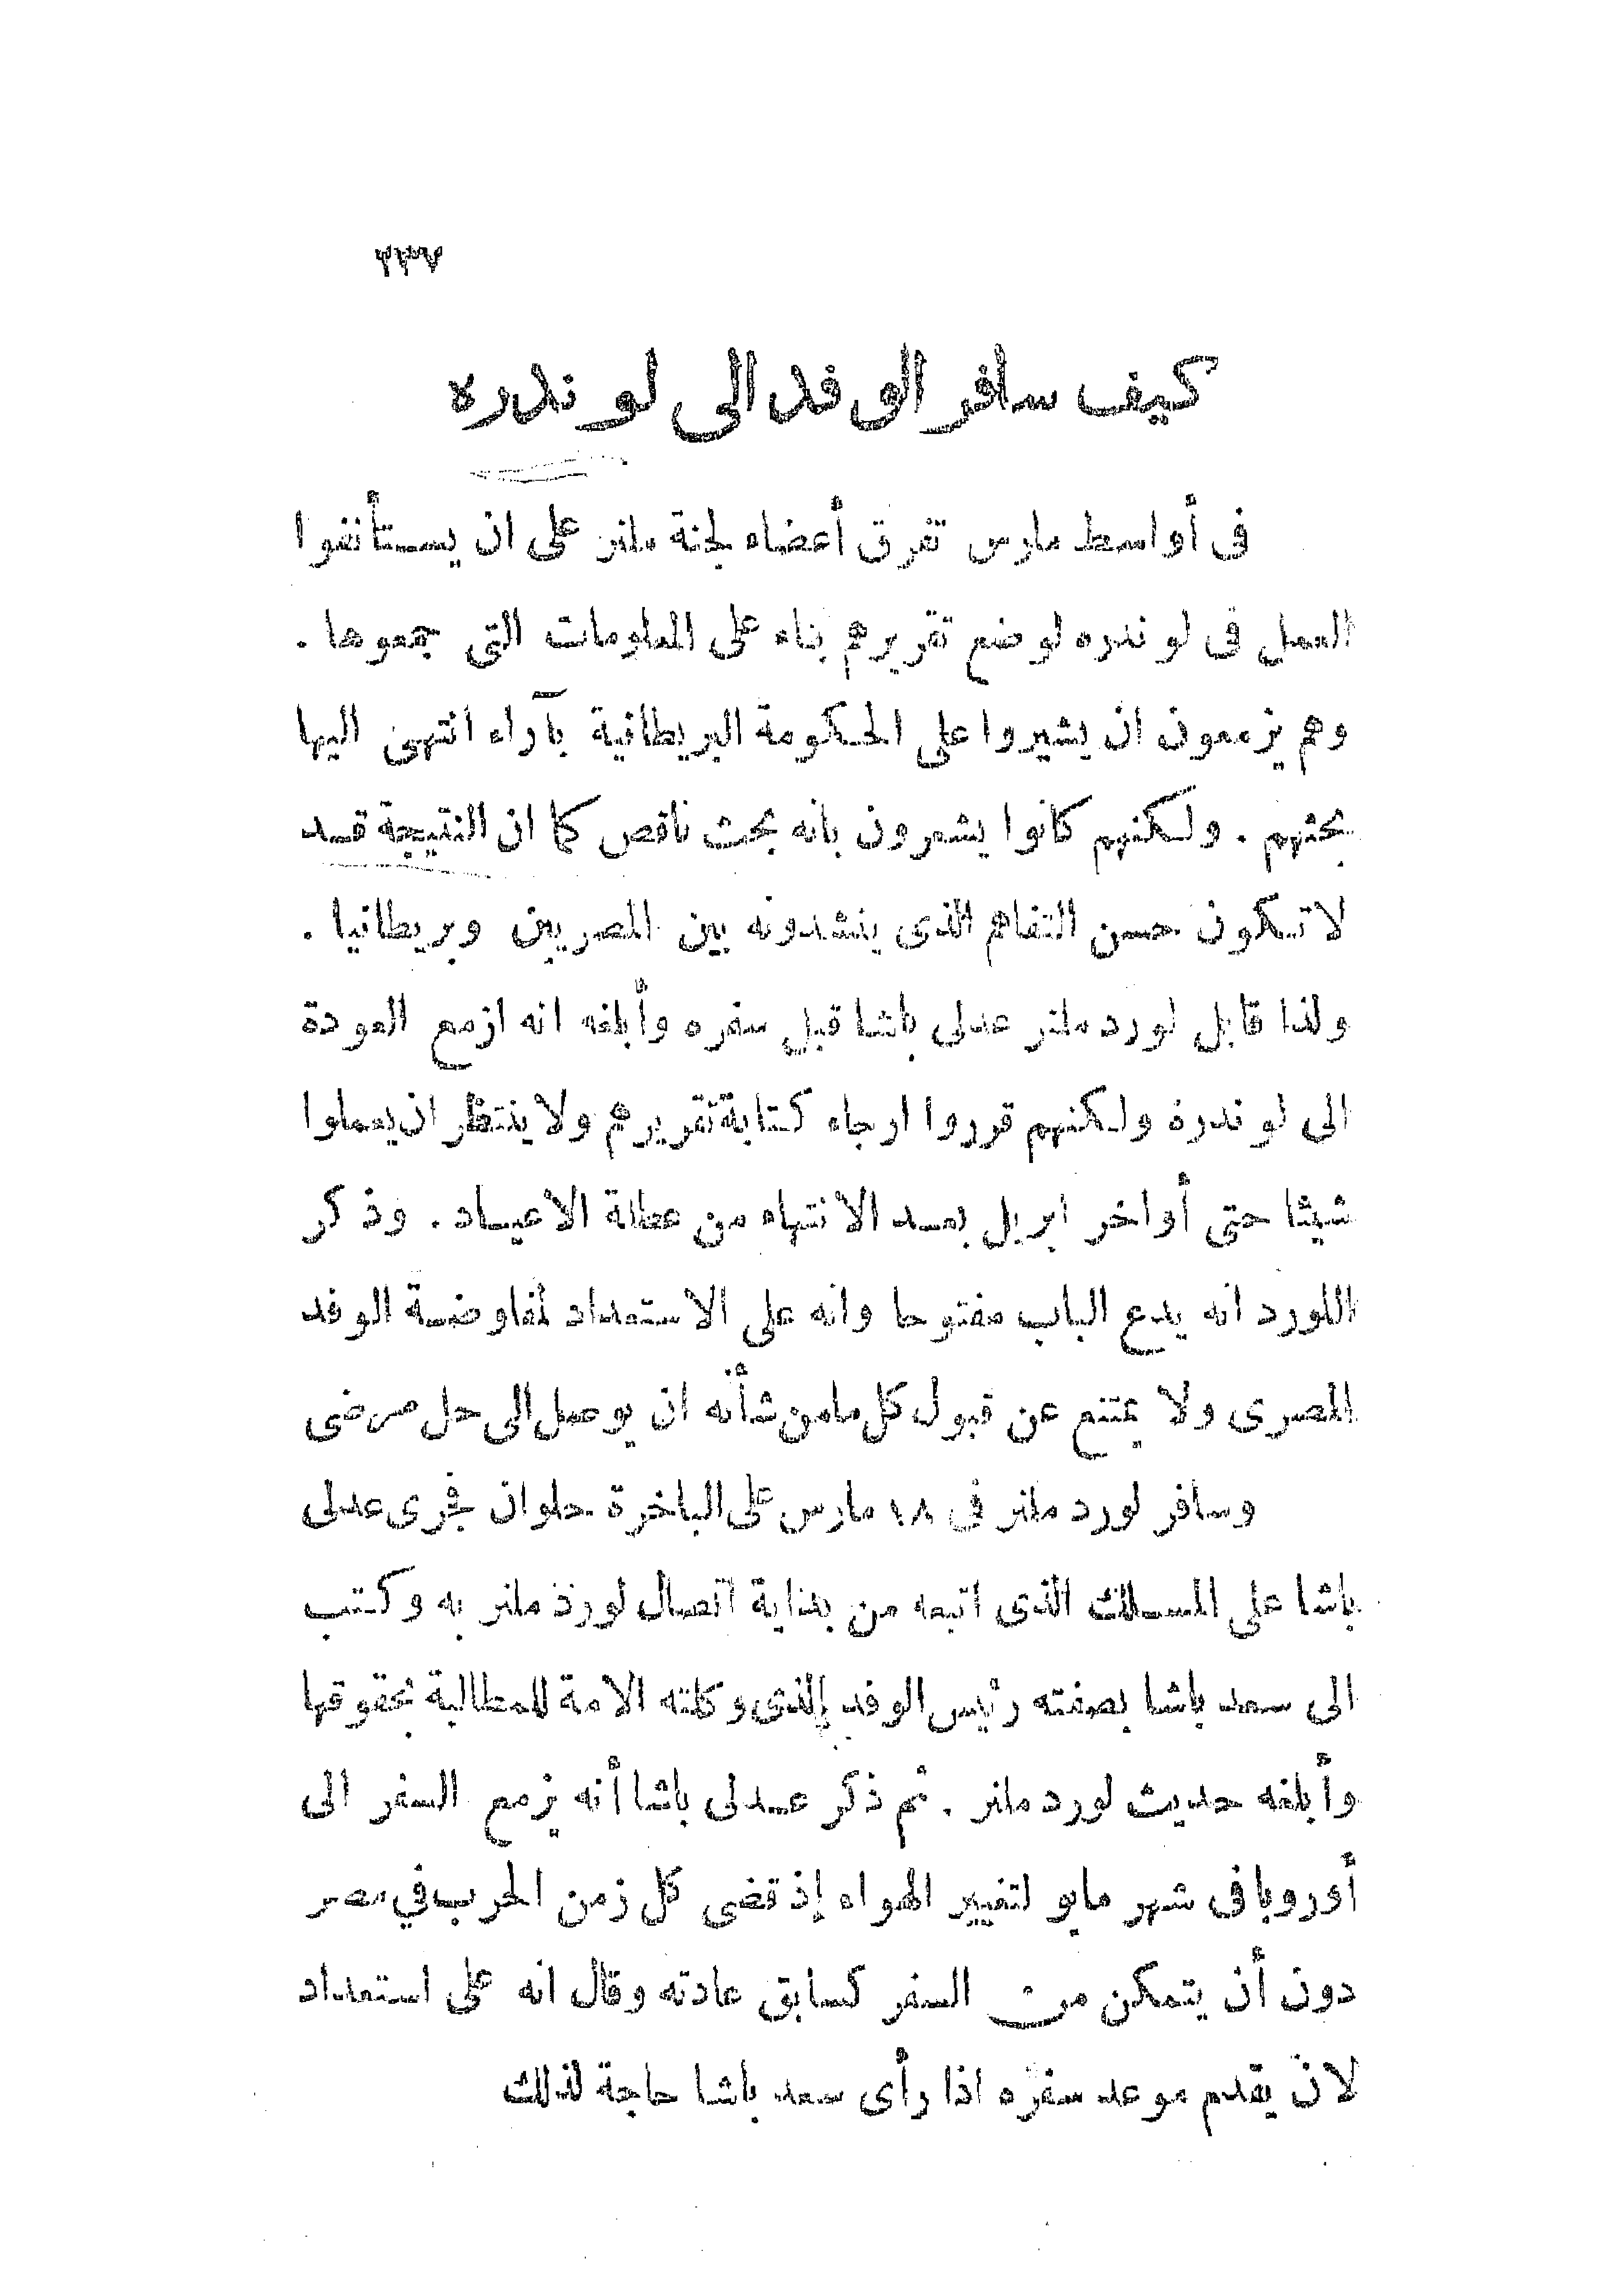 ٢٣٧
كيف سافر الوفد الى لوندره
فى أواسط مارس تفرق أعضاء لجنة ملنر على ان يستأنفوا
العمل فى لوندره لوضع تقريرهم بناء على المعلومات التى جمعوها .
وهم يزمعون ان يشيروا على الحكومة البريطانية بآراء انتهى اليها
بحثهم . ولكنهم كانوا يشعرون بانه بحث ناقص كما ان النتيجة قد
لا تكون حسن التفاهم الذى ينشدونه بين المصريين وبريطانيا .
ولذا قابل لورد ملنر عدلى باشا قبل سفره وأبلغه انه ازمع العودة
الى لوندرة ولكنهم قرروا ارجاء كتابة تقريرهم ولا ينتظر ان يعملوا
شيئا حتى أواخر ابريل بعد الانتهاء من عطلة الاعياد . وذكر
اللورد انه يدع الباب مفتوحا وانه على الاستعداد لمفاوضة الوفد
المصرى ولا يمتنع عن قبول كل ما من شأنه ان يوصل الى حل مرضى
وسافر لورد ملنر فى ١٨ مارس على الباخرة حلوان فجرى عدلى
باشا على المسلك الذى اتبعه من بداية اتصال لورد ملنر به وكتب
الى سعد باشا بصفته رئيس الوفد الذى وكلته الامة للمطالبة بحقوقها
وأبلغه حديث لورد ملنر . ثم ذكر عدلى باشا أنه يزمع السفر الى
أوروبا فى شهر مايو لتغيير الهواء إذ قضى كل زمن الحرب في مصر
دون أن يتمكن من السفر كسابق عادته وقال انه على استعداد
لان يقدم موعد سفره اذا رأى سعد باشا حاجة لذلك